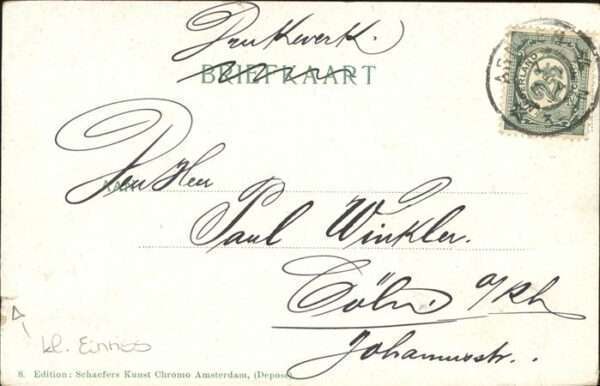 Drukwerk.
BRIEFKAART
NEDERLAND
2½
Den Herr
AAN
Paul Winkler.
Cöln a/Rh
Johannisstr.
kl. Einriss
8. Edition: Schaefers Kunst Chromo Amsterdam, (Deposé)